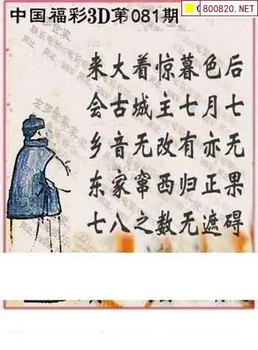 800820.NET
中国福彩3D第081期
来大着惊暮色后
会古城主七月七
乡音无改有亦无
东家窜西归正果
七八之数无遮碍